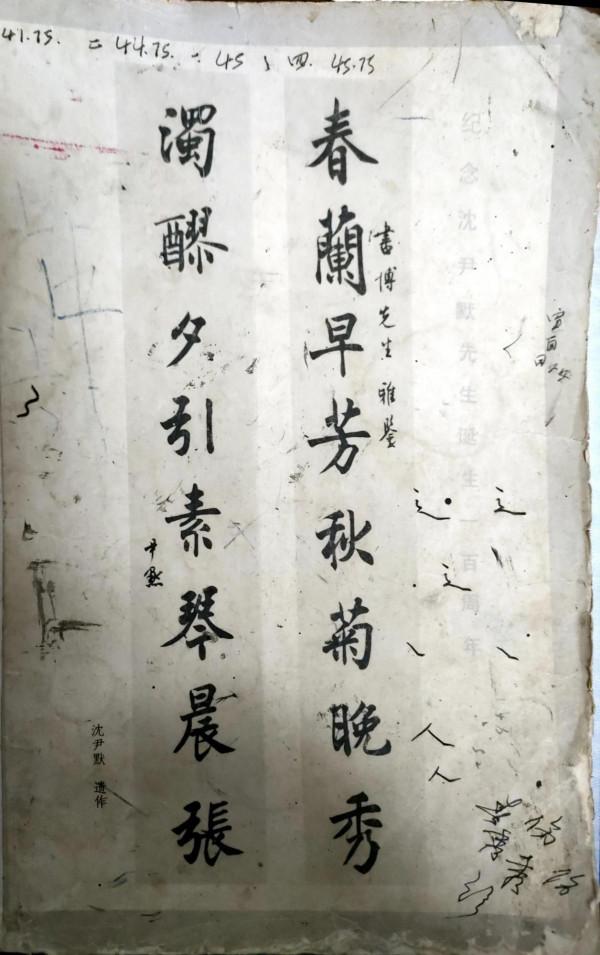 41.75. 二 44.75. 二 45 〉 四. 45.75
纪念沈尹默先生诞生一百周年
春蘭早芳秋菊晚秀
書博先生雅鑒
濁醪夕引素琴晨張
尹默
沈尹默 遺作
之
之
之
人
人